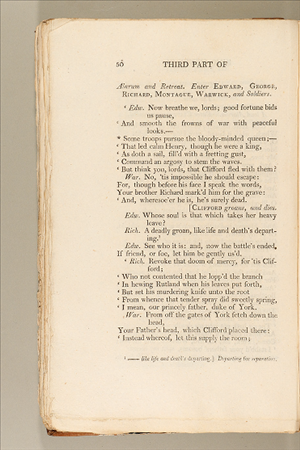 56 THIRD PART OF
Alarum and Retreat. Enter EDWARD, GEORGE,
RICHARD, MONTAGUE, WARWICK, and Soldiers.
‘ Edw. Now breathe we, lords; good fortune bids
us pause,
‘ And smooth the frowns of war with peaceful
looks.—
* Some troops pursue the bloody-minded queen;—
‘ That led calm Henry, though he were a king,
‘ As doth a sail, fill'd with a fretting gust,
‘ Command an argosy to stem the waves.
‘ But think you, lords, that Clifford fled with them?
War. No, 'tis impossible he should escape:
For, though before his face I speak the words,
Your brother Richard mark'd him for the grave:
‘ And, wheresoe'er he is, he's surely dead.
[Clifford groans, and dies.
Edw. Whose soul is that which takes her heavy
leave?
Rich. A deadly groan, like life and death's depart-
ing.¹
Edw. See who it is: and, now the battle's ended,
If friend, or foe, let him be gently us'd.
‘ Rich. Revoke that doom of mercy, for 'tis Clif-
ford;
‘ Who not contented that he lopp'd the branch
‘ In hewing Rutland when his leaves put forth,
‘ But set his murdering knife unto the root
‘ From whence that tender spray did sweetly spring,
‘ I mean, our princely father, duke of York.
War. From off the gates of York fetch down the
head,
Your Father's head, which Clifford placed there:
‘ Instead whereof, let this supply the room;
¹ —— like life and death's departing.] Departing for separation.